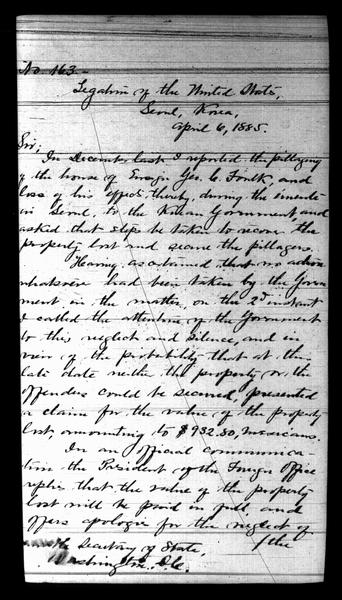 No. 163.
Legation of the United States,
Seoul, Korea,
April 6, 1885.
Sir;
In December last I reported the pillaging
of the house of Ensign Geo. C. Foulk, and
loss of his effects thereby, during the émeute
in Seoul, to the Korean Government, and
asked that steps be taken to recover the
property lost and secure the pillagers.
Having ascertained that no action
whatsoever had been taken by the Govern
ment in the matter, on the 2d instant
I called the attention of the Government
to this neglect and silence, and in
view of the probability that at this
late date neither the property or the
offenders could be secured, presented
a claim for the value of the property
lost, amounting to $932.50, Mexicans.
In an official communica-
tion the President of the Foreign Office
replies that the value of the property
lost will be paid in full, and
offers apologies for the neglect of
/the
the Secretary of State,
Washington, D.C.